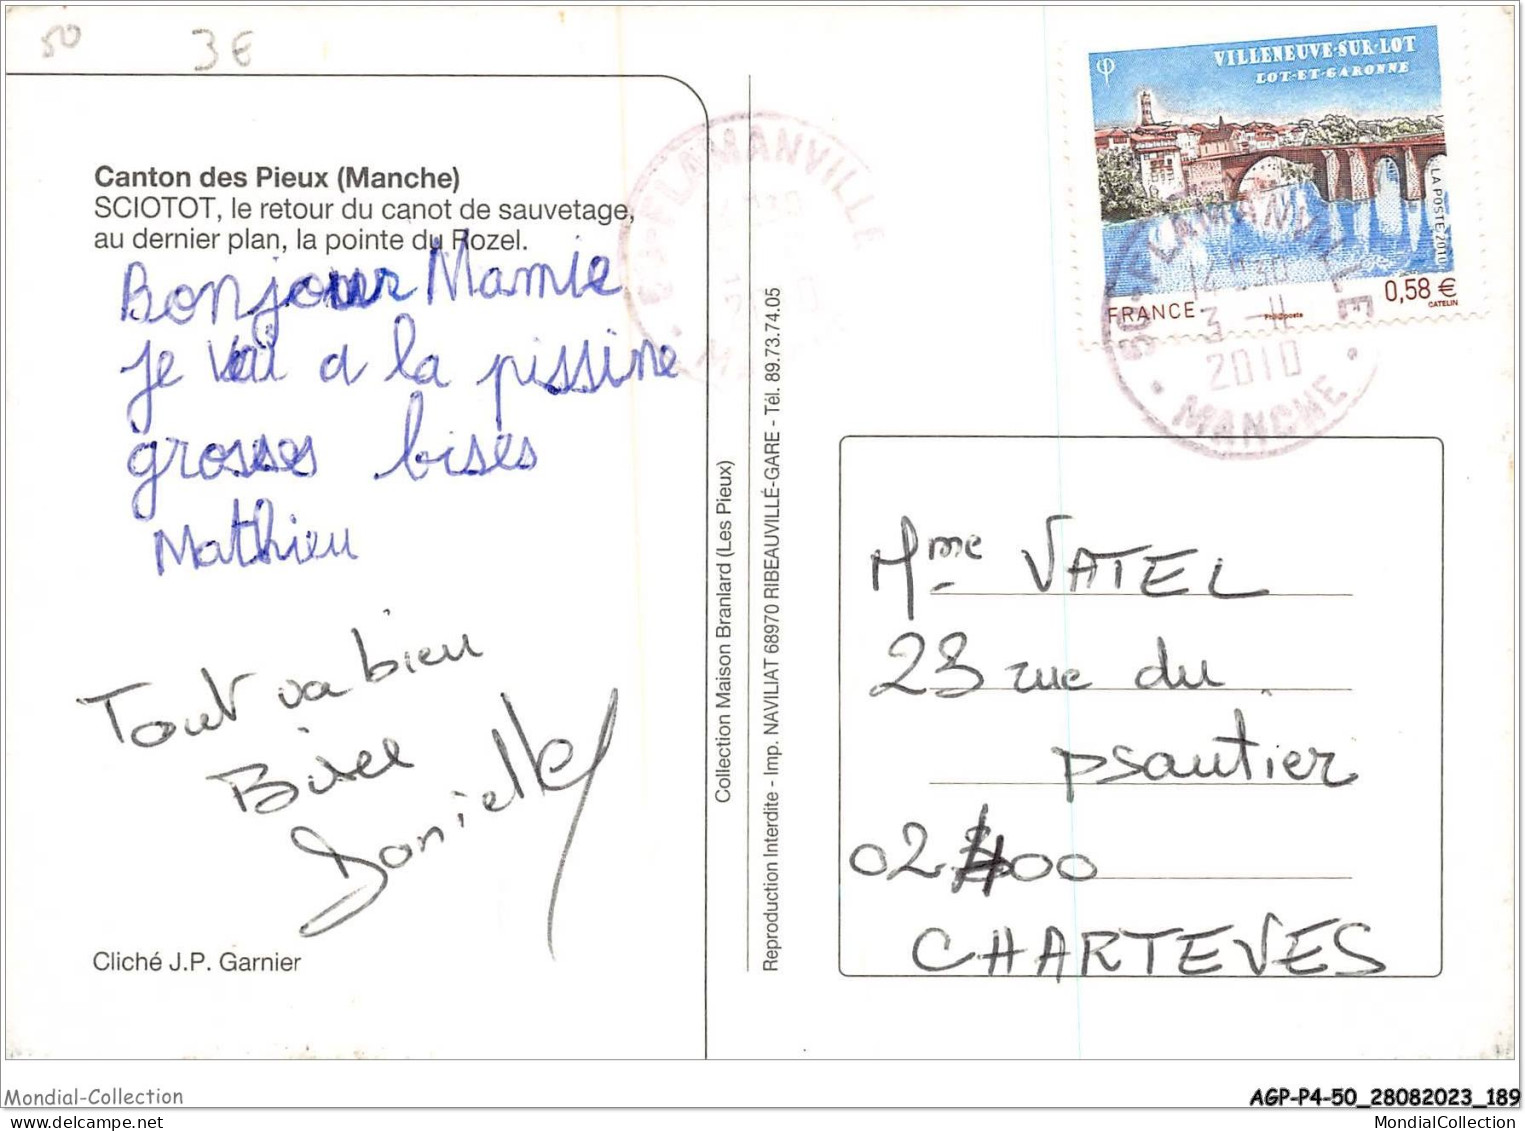 50 3€
Canton des Pieux (Manche)
SCIOTOT, le retour du canot de sauvetage,
au dernier plan, la pointe du Rozel.
Bonjour Mamie
je vai a la pissine
grosses bises
Mathieu
Tout va bien
Bises
Danielle
Cliché J.P. Garnier
Collection Maison Branlard (Les Pieux)
Reproduction Interdite - Imp. NAVILIAT 68970 RIBEAUVILLÉ-GARE - Tél. 89.73.74.05
VILLENEUVE-SUR-LOT
LOT-ET-GARONNE
LA POSTE 2010
FRANCE
Phil@poste
0,58 €
CATELIN
50-FLAMANVILLE
14H30
3 - 11
2010
MANCHE
FLAMANVILLE
Mme VATEL
23 rue du
psautier
02400
CHARTEVES
Mondial-Collection
AGP-P4-50_28082023_189
MondialCollection